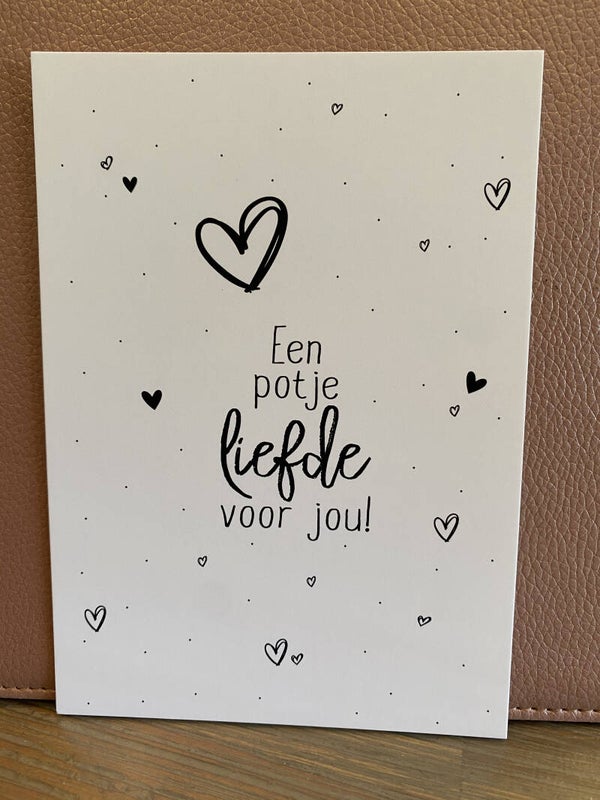 Een
potje
liefde
voor jou!